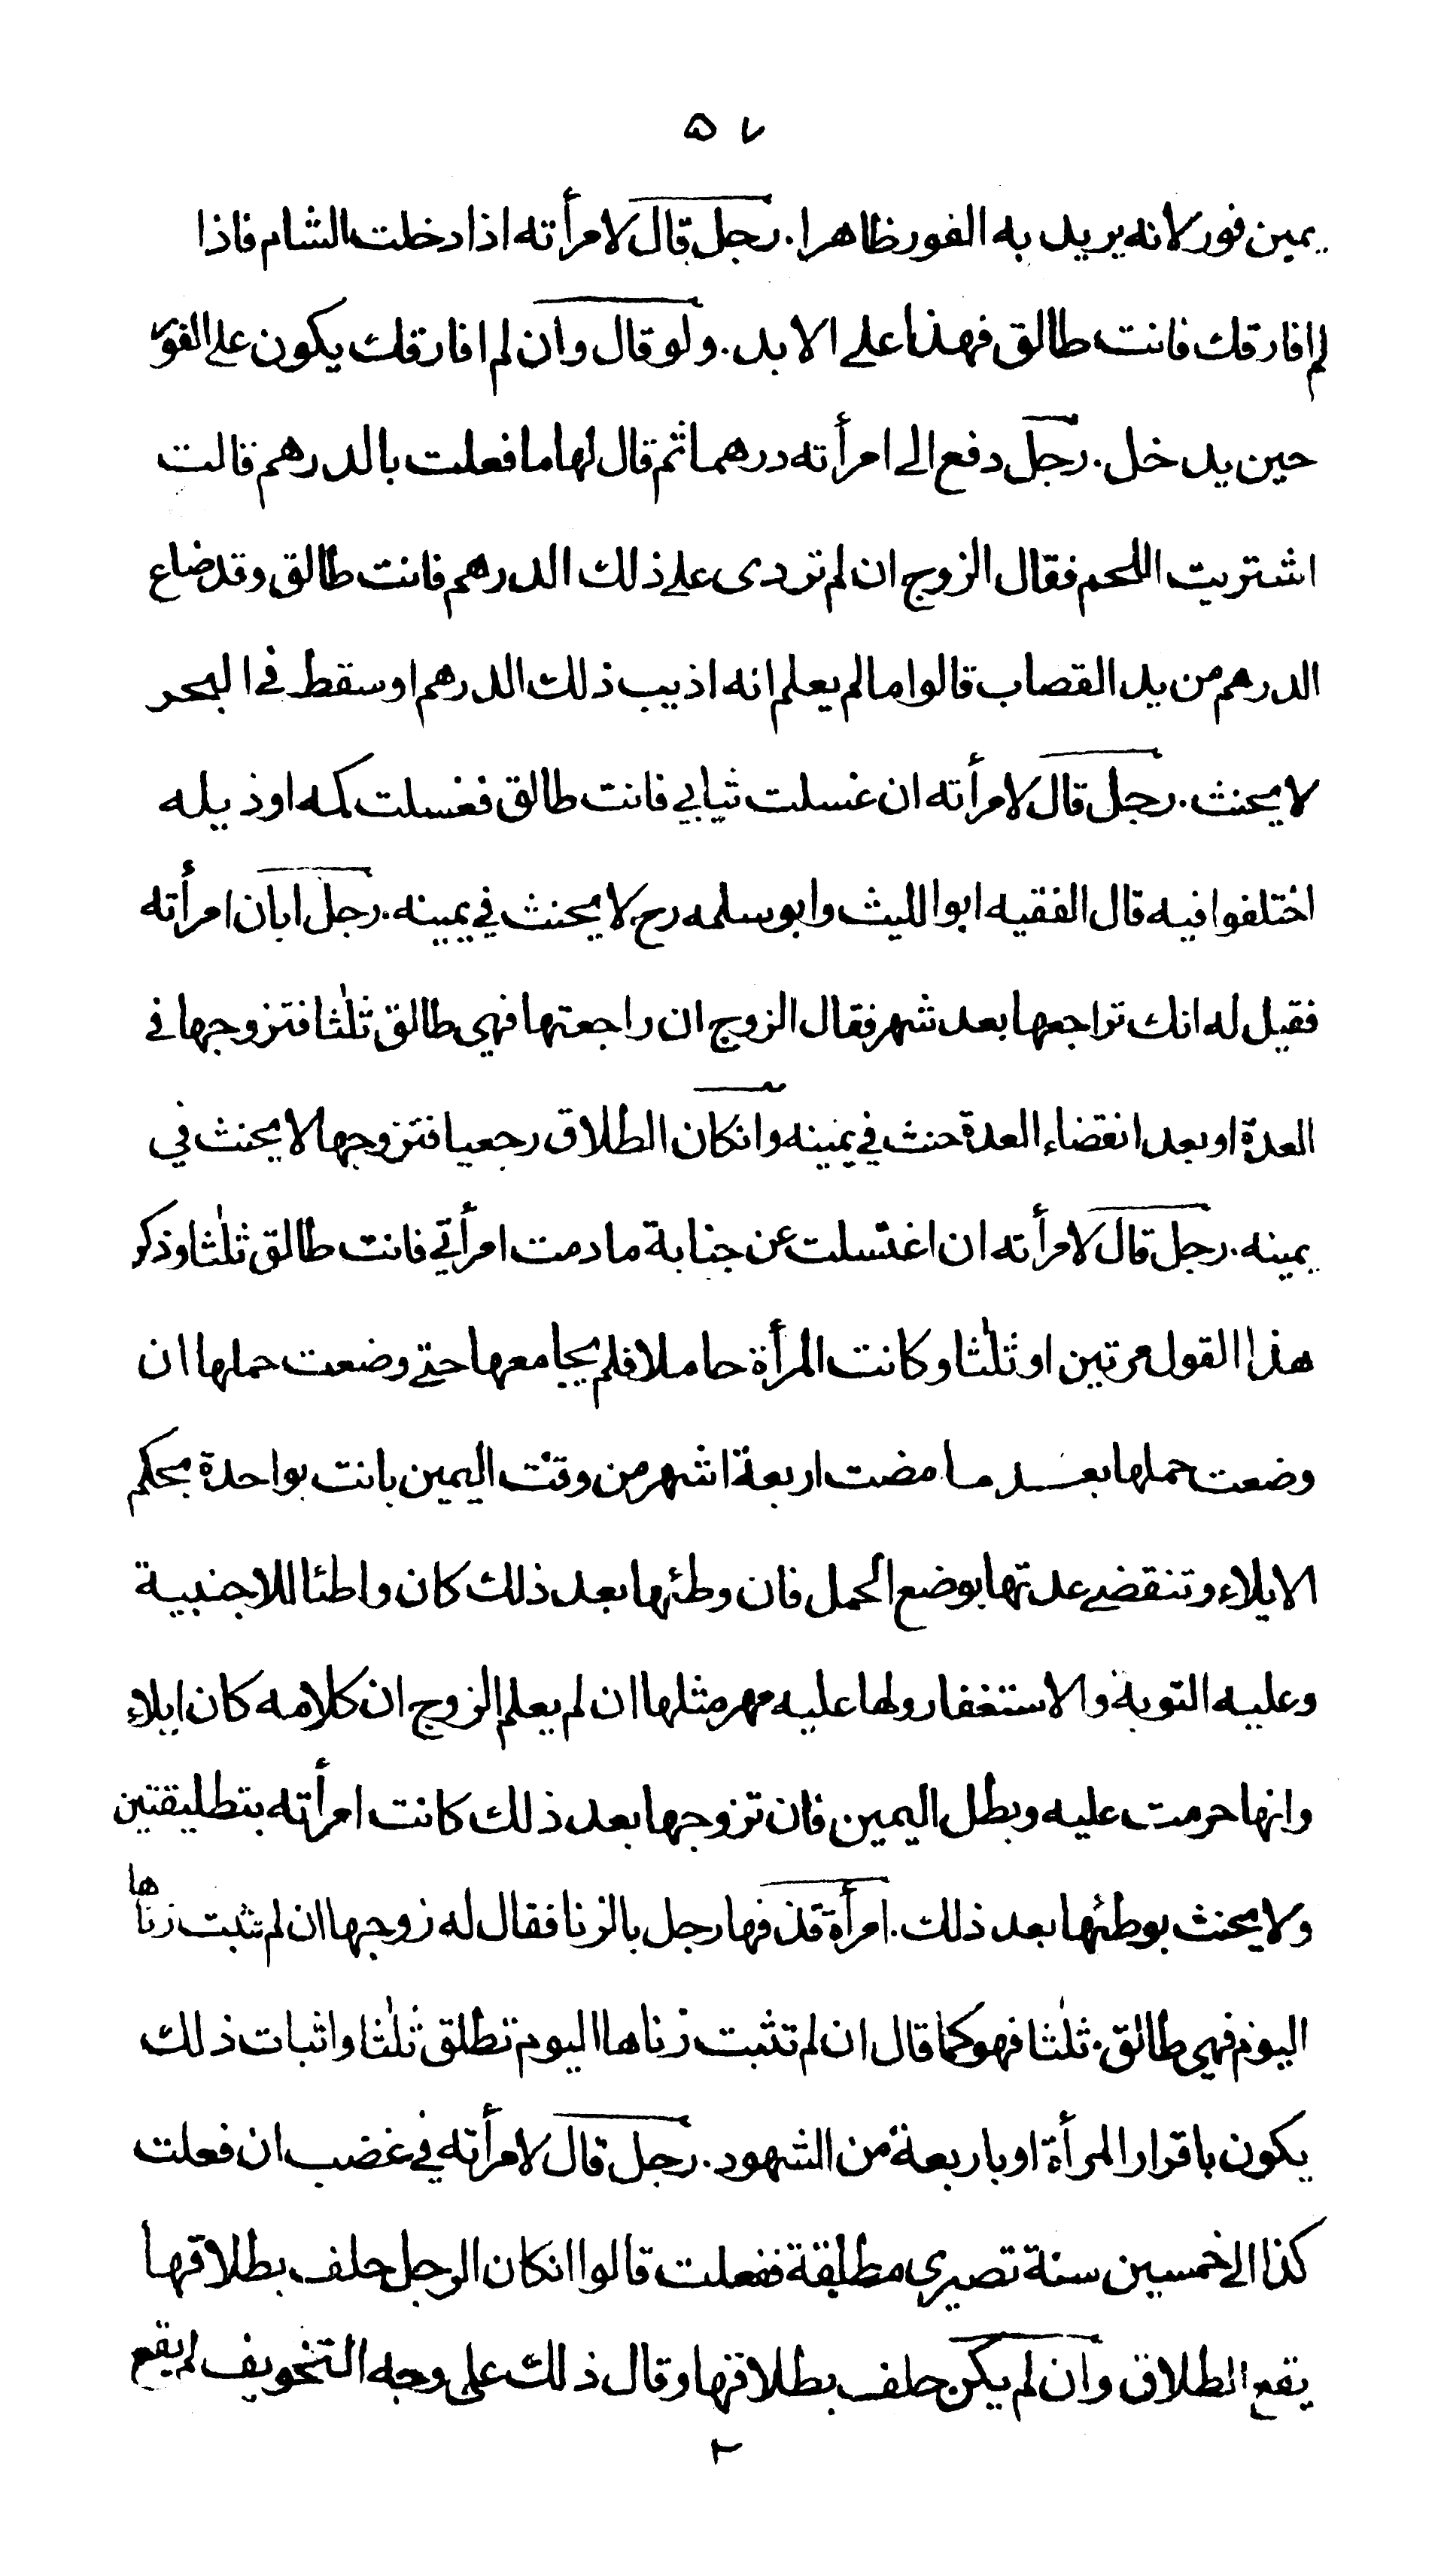 ۵۷
يمين فور لانه يريد به الفور ظاهرا. رجل قال لامرأته اذا دخلت الشام فاذا
لم افارقك فانت طالق فهذا على الابد. ولو قال وان لم افارقك يكون على الفور
حين يدخل. رجل دفع الى امرأته درهما ثم قال لها ما فعلت بالدرهم قالت
اشتريت اللحم فقال الزوج ان لم تردى على ذلك الدرهم فانت طالق وقد ضاع
الدرهم من يد القصاب قالوا ما لم يعلم انه اذيب ذلك الدرهم او سقط في البحر
لا يحنث. رجل قال لامرأته ان غسلت ثيابي فانت طالق فغسلت كمه او ذيله
اختلفوا فيه قال الفقيه ابوالليث وابوسلمه رح لا يحنث في يمينه. رجل ابان امرأته
فقيل له انك تراجعها بعد شهر فقال الزوج ان راجعتها فهي طالق ثلٰثا فتزوجها في
العدة او بعد انقضاء العدة حنث في يمينه وانكان الطلاق رجعيا فتزوجها لا يحنث في
يمينه. رجل قال لامرأته ان اغتسلت عن جنابة ما دمت امرأتي فانت طالق ثلٰثا وذكر
هذا القول مرتين او ثلٰثا وكانت المرأة حاملا فلم يجامعها حتى وضعت حملها ان
وضعت حملها بعد ما مضت اربعة اشهر من وقت اليمين بانت بواحدة بحكم
الايلاء وتنقضي عدتها بوضع الحمل فان وطئها بعد ذلك كان واطئا للاجنبية
وعليه التوبة والاستغفار ولها عليه مهر مثلها ان لم يعلم الزوج ان كلامه كان ايلاء
وانها حرمت عليه وبطل اليمين فان تزوجها بعد ذلك كانت امرأته بتطليقتين
ولا يحنث بوطئها بعد ذلك. امرأة قذفها رجل بالزنا فقال له زوجها ان لم تثبت زناها
اليوم فهي طالق. ثلٰثا فهو كما قال ان لم تثبت زناها اليوم تطلق ثلٰثا واثبات ذلك
يكون باقرار المرأة او باربعة من الشهود. رجل قال لامرأته في غضب ان فعلت
كذا الى خمسين سنة تصيرى مطلقة ففعلت قالوا انكان الرجل حلف بطلاقها
يقع الطلاق وان لم يكن حلف بطلاقها وقال ذلك على وجه التخويف لم يقع
۲